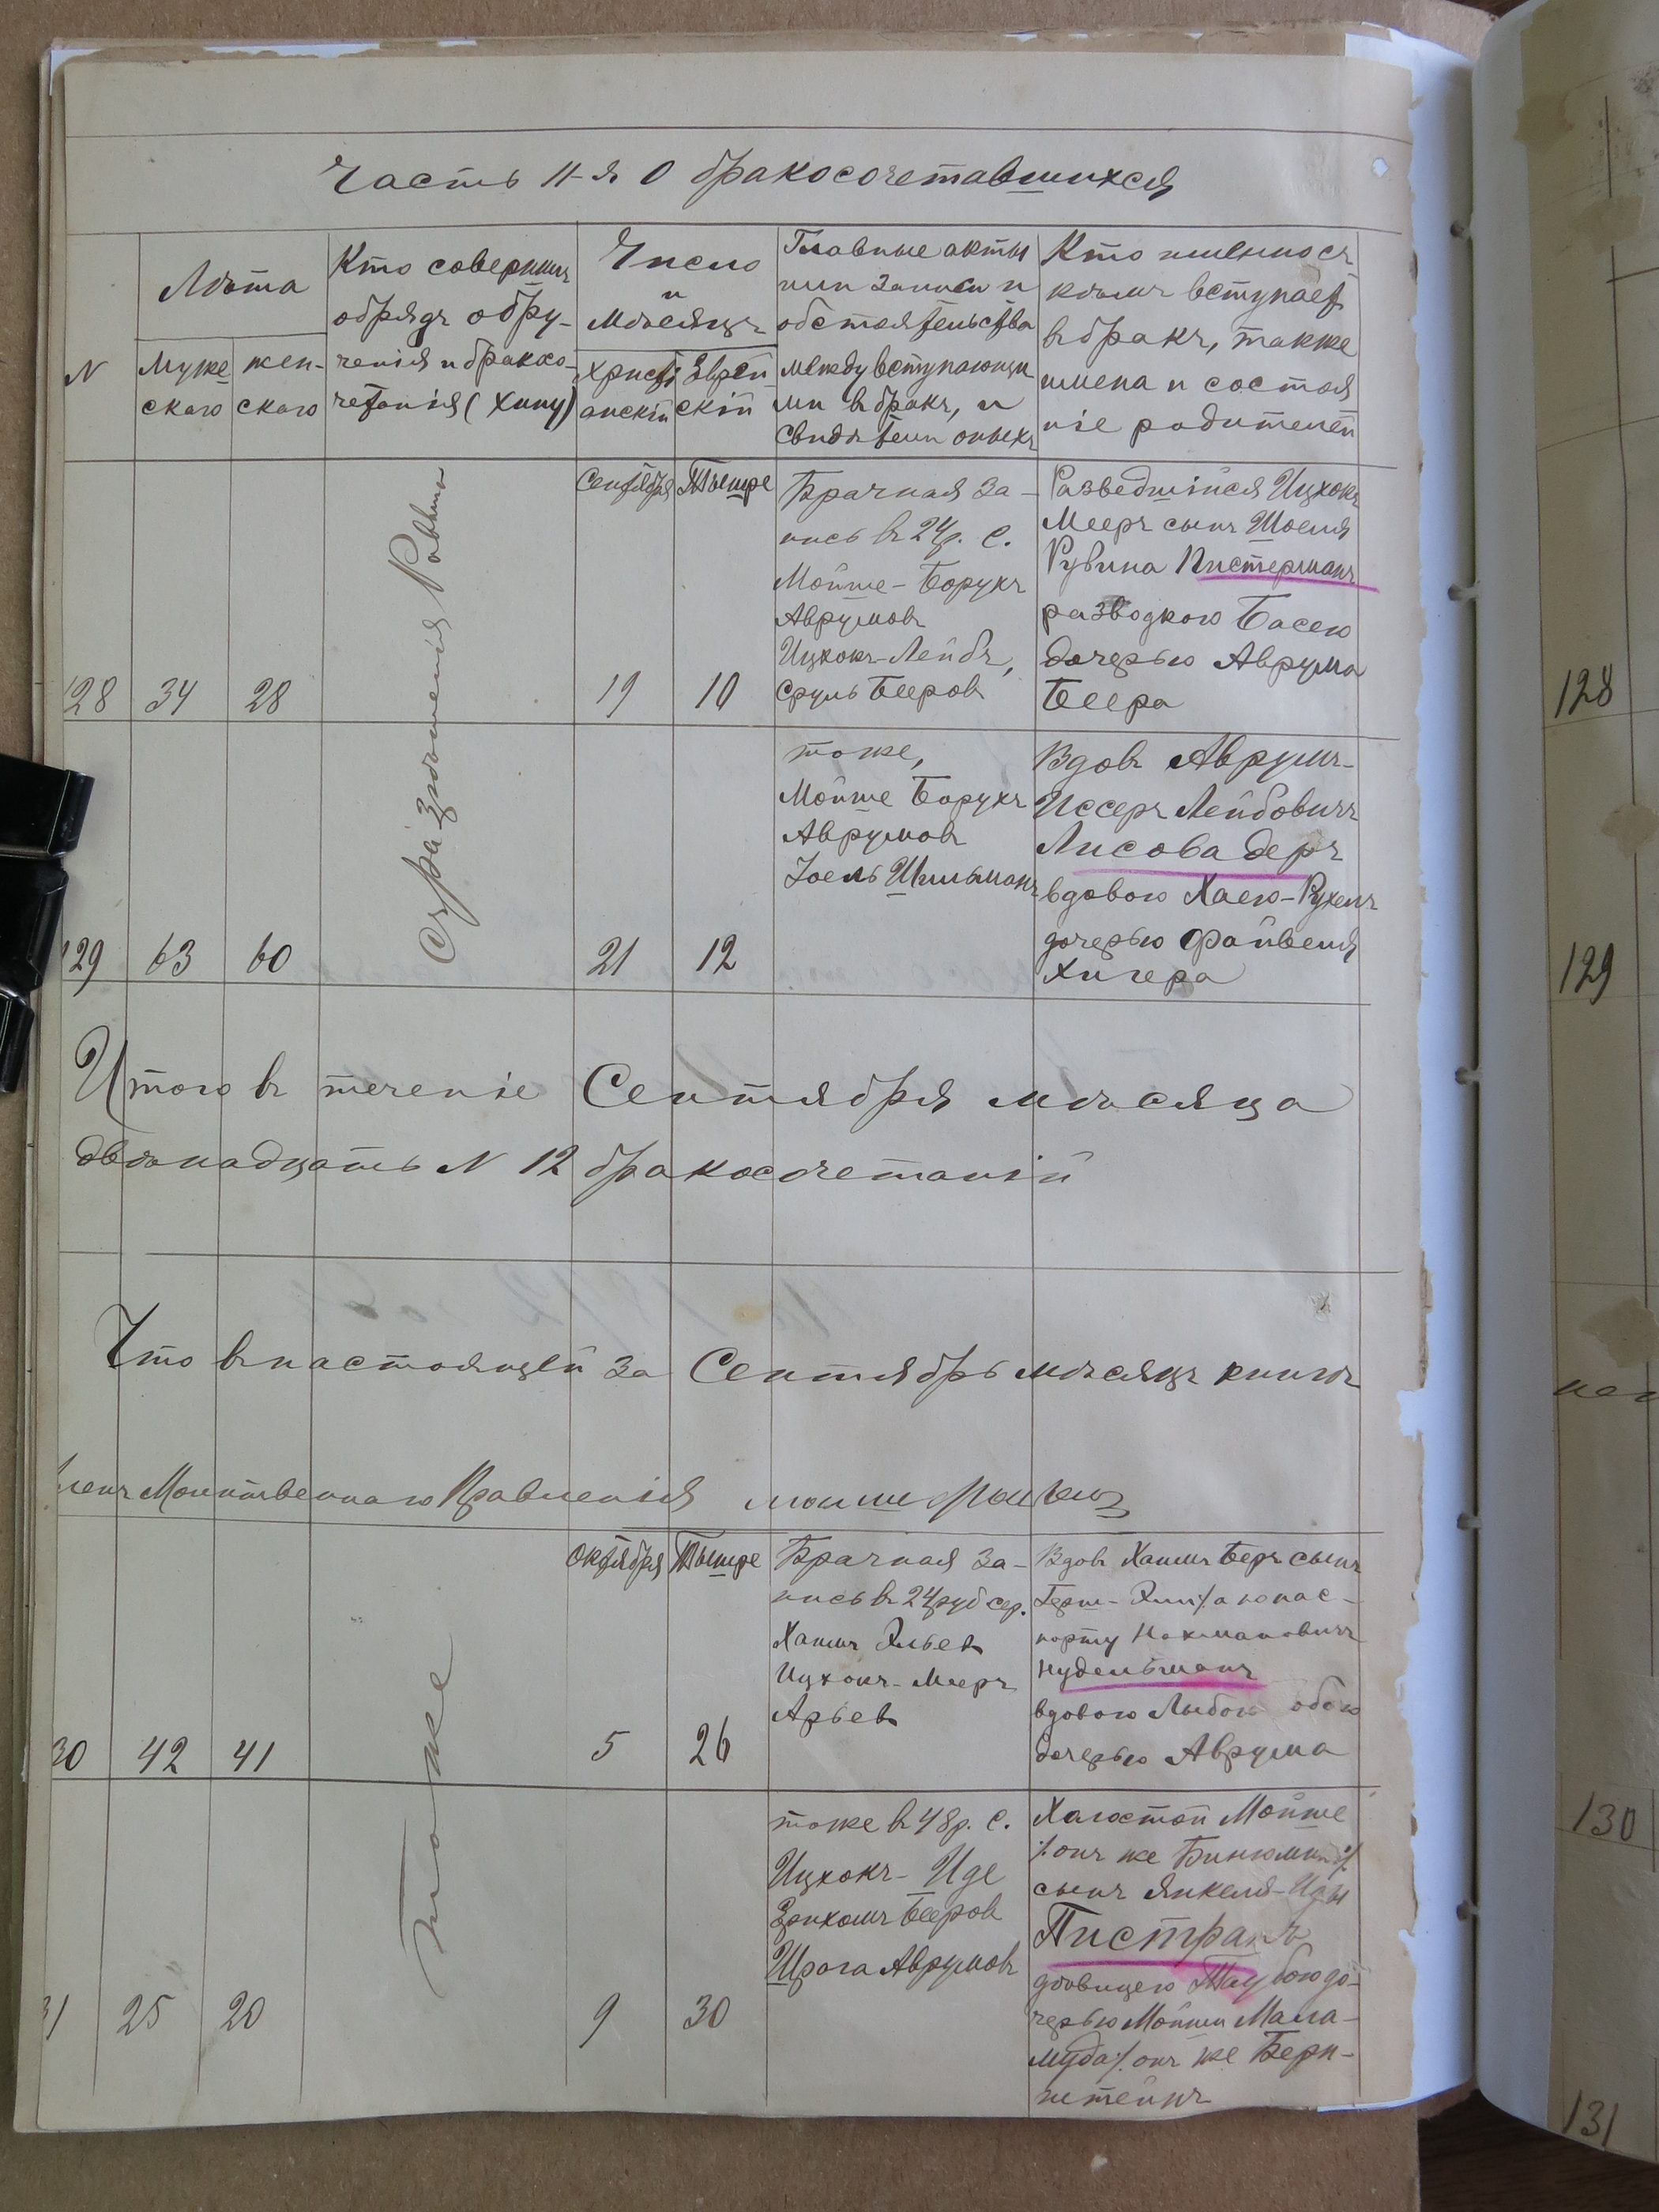 Часть II-я О бракосочетавшихся
N
Лѣта
Муже
скаго
жен-
скаго
Кто совершилъ
обрядъ обру-
ченія и бракосо-
четанія (Хипу)
Число
и
Мѣсяцъ
христі
анскій
Еврей
скій
Главные акты
или записи и
обстоятельства
между вступающи
ми в бракъ, и
свидѣтели оныхъ
Кто именно съ
кѣмъ вступает
в бракъ, также
имена и состоя
ніе родителей
128
34
28
Раввинъ
Сентября
19
Тышре
10
Брачная за-
пись в 24 р. с.
Мойше-Борухъ
Аврумовъ
Ицхокъ-Лейбъ,
Сруль Бееровъ
Разведшійся Ицхокъ
Мееръ сынъ Шоеля
Рувина Пистерманъ
разводкою Басею
дочерью Аврума
Беера
129
63
60
21
12
тоже,
Мойше Борухъ
Аврумовъ
Іоель Шильманъ
Вдовъ Аврумъ-
Иссеръ Лейбовичъ
Лисова деръ
вдовою Хаею-Рухелъ
дочерью Файвеля
Хигера
Итого въ теченіе Сентября мѣсяца
двѣнадцать N 12 бракосочетаній
Что в настоящей за Сентябрь мѣсяцъ книгѣ
ленъ Молитвеннаго Правленія
30
42
41
тоже
Октября
5
Тышре
26
Брачная за-
пись в 24 руб сер.
Хаимъ Эльевъ
Ицхокъ-Мееръ
Арьевъ
Вдовъ Хаимъ Беръ сынъ
Герш-Эли /. а по пас-
порту Нахмановичъ
Нудельманъ
вдовою Лыбою
дочерью Аврума
31
25
20
9
30
тоже в 48 р. с.
Ицхокъ-Иде
Зрихомъ Бееровъ
Шрага Аврумовъ
Холостой Мойше
/. онъ же Бинюминъ ./
сынъ Янкеля-Иды
Пистракъ
дѣвицею Таубою до-
черью Мойши Мала-
муда /. онъ же Берн-
штейнъ
128
129
130
131